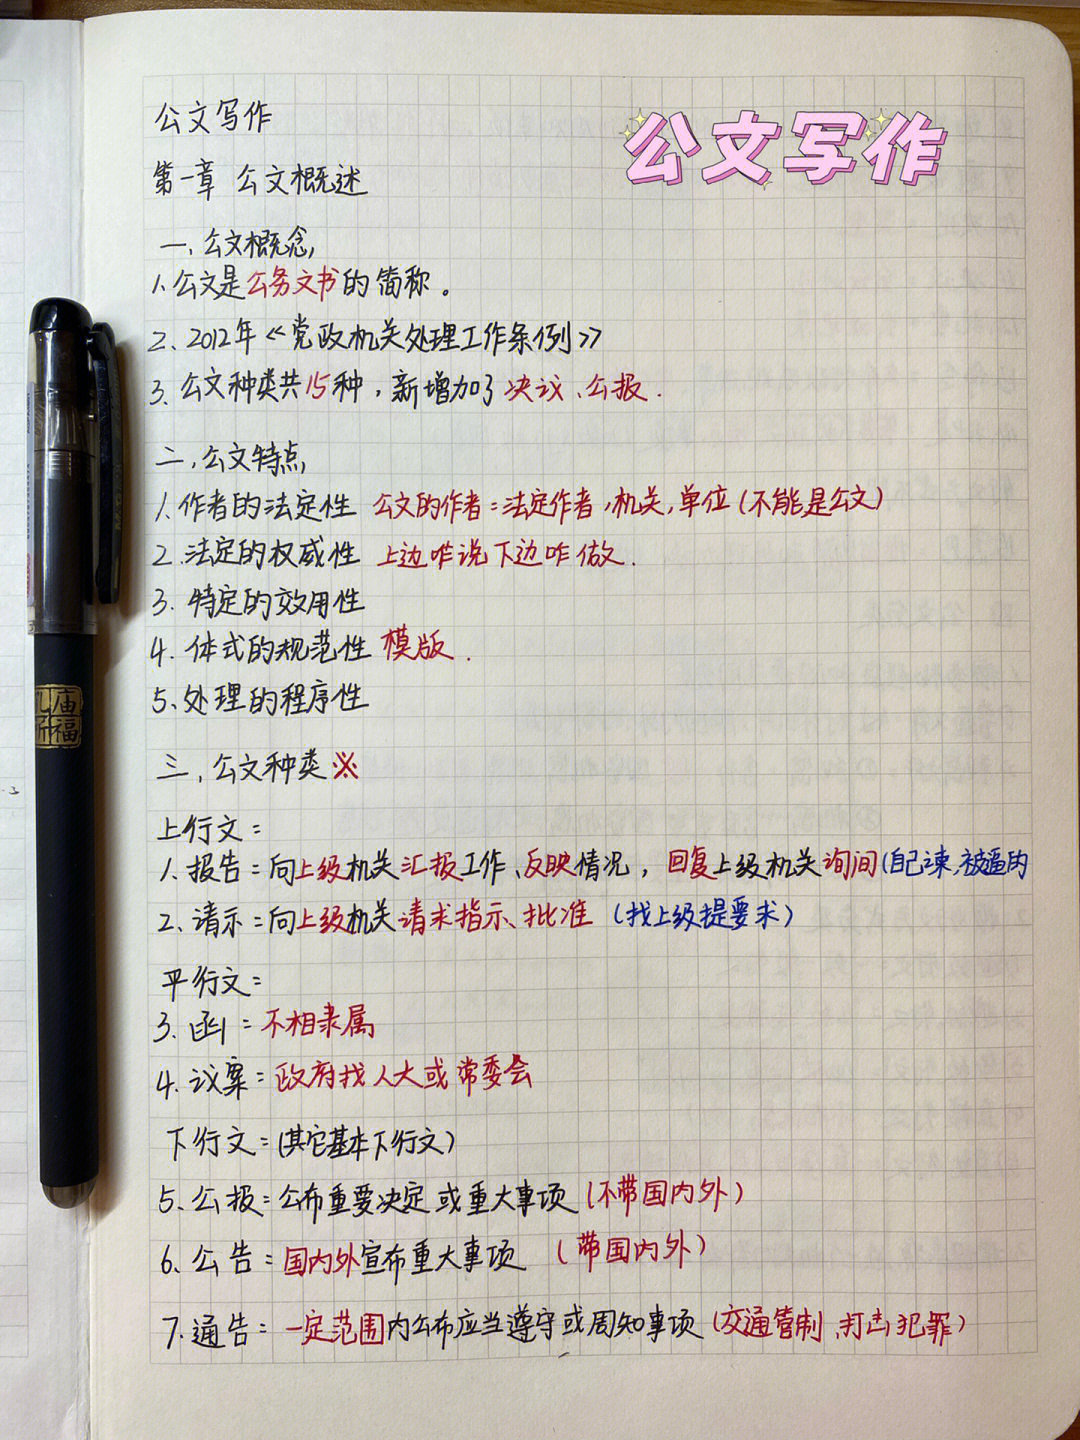 公文写作
公文写作
第一章 公文概述
一、公文概念
1、公文是公务文书的简称。
2、2012年《党政机关处理工作条例》
3、公文种类共15种，新增加了决议、公报.
二、公文特点
1、作者的法定性 公文的作者：法定作者，机关，单位(不能是公文)
2.法定的权威性 上边咋说下边咋做.
3. 特定的效用性
4. 体式的规范性 模版.
5、处理的程序性
三、公文种类※
上行文：
1、报告：向上级机关汇报工作、反映情况，回复上级机关询问(自己来，被逼的
2、请示：向上级机关请求指示、批准 (找上级提要求)
平行文：
3. 函：不相隶属
4. 议案：政府找人大或常委会
下行文：(其它基本下行文)
5、公报：公布重要决定或重大事项(不带国内外)
6、公告：国内外宣布重大事项 (带国内外)
7.通告：一定范围内公布应当遵守或周知事项(交通管制、打击犯罪)
庙
祈福